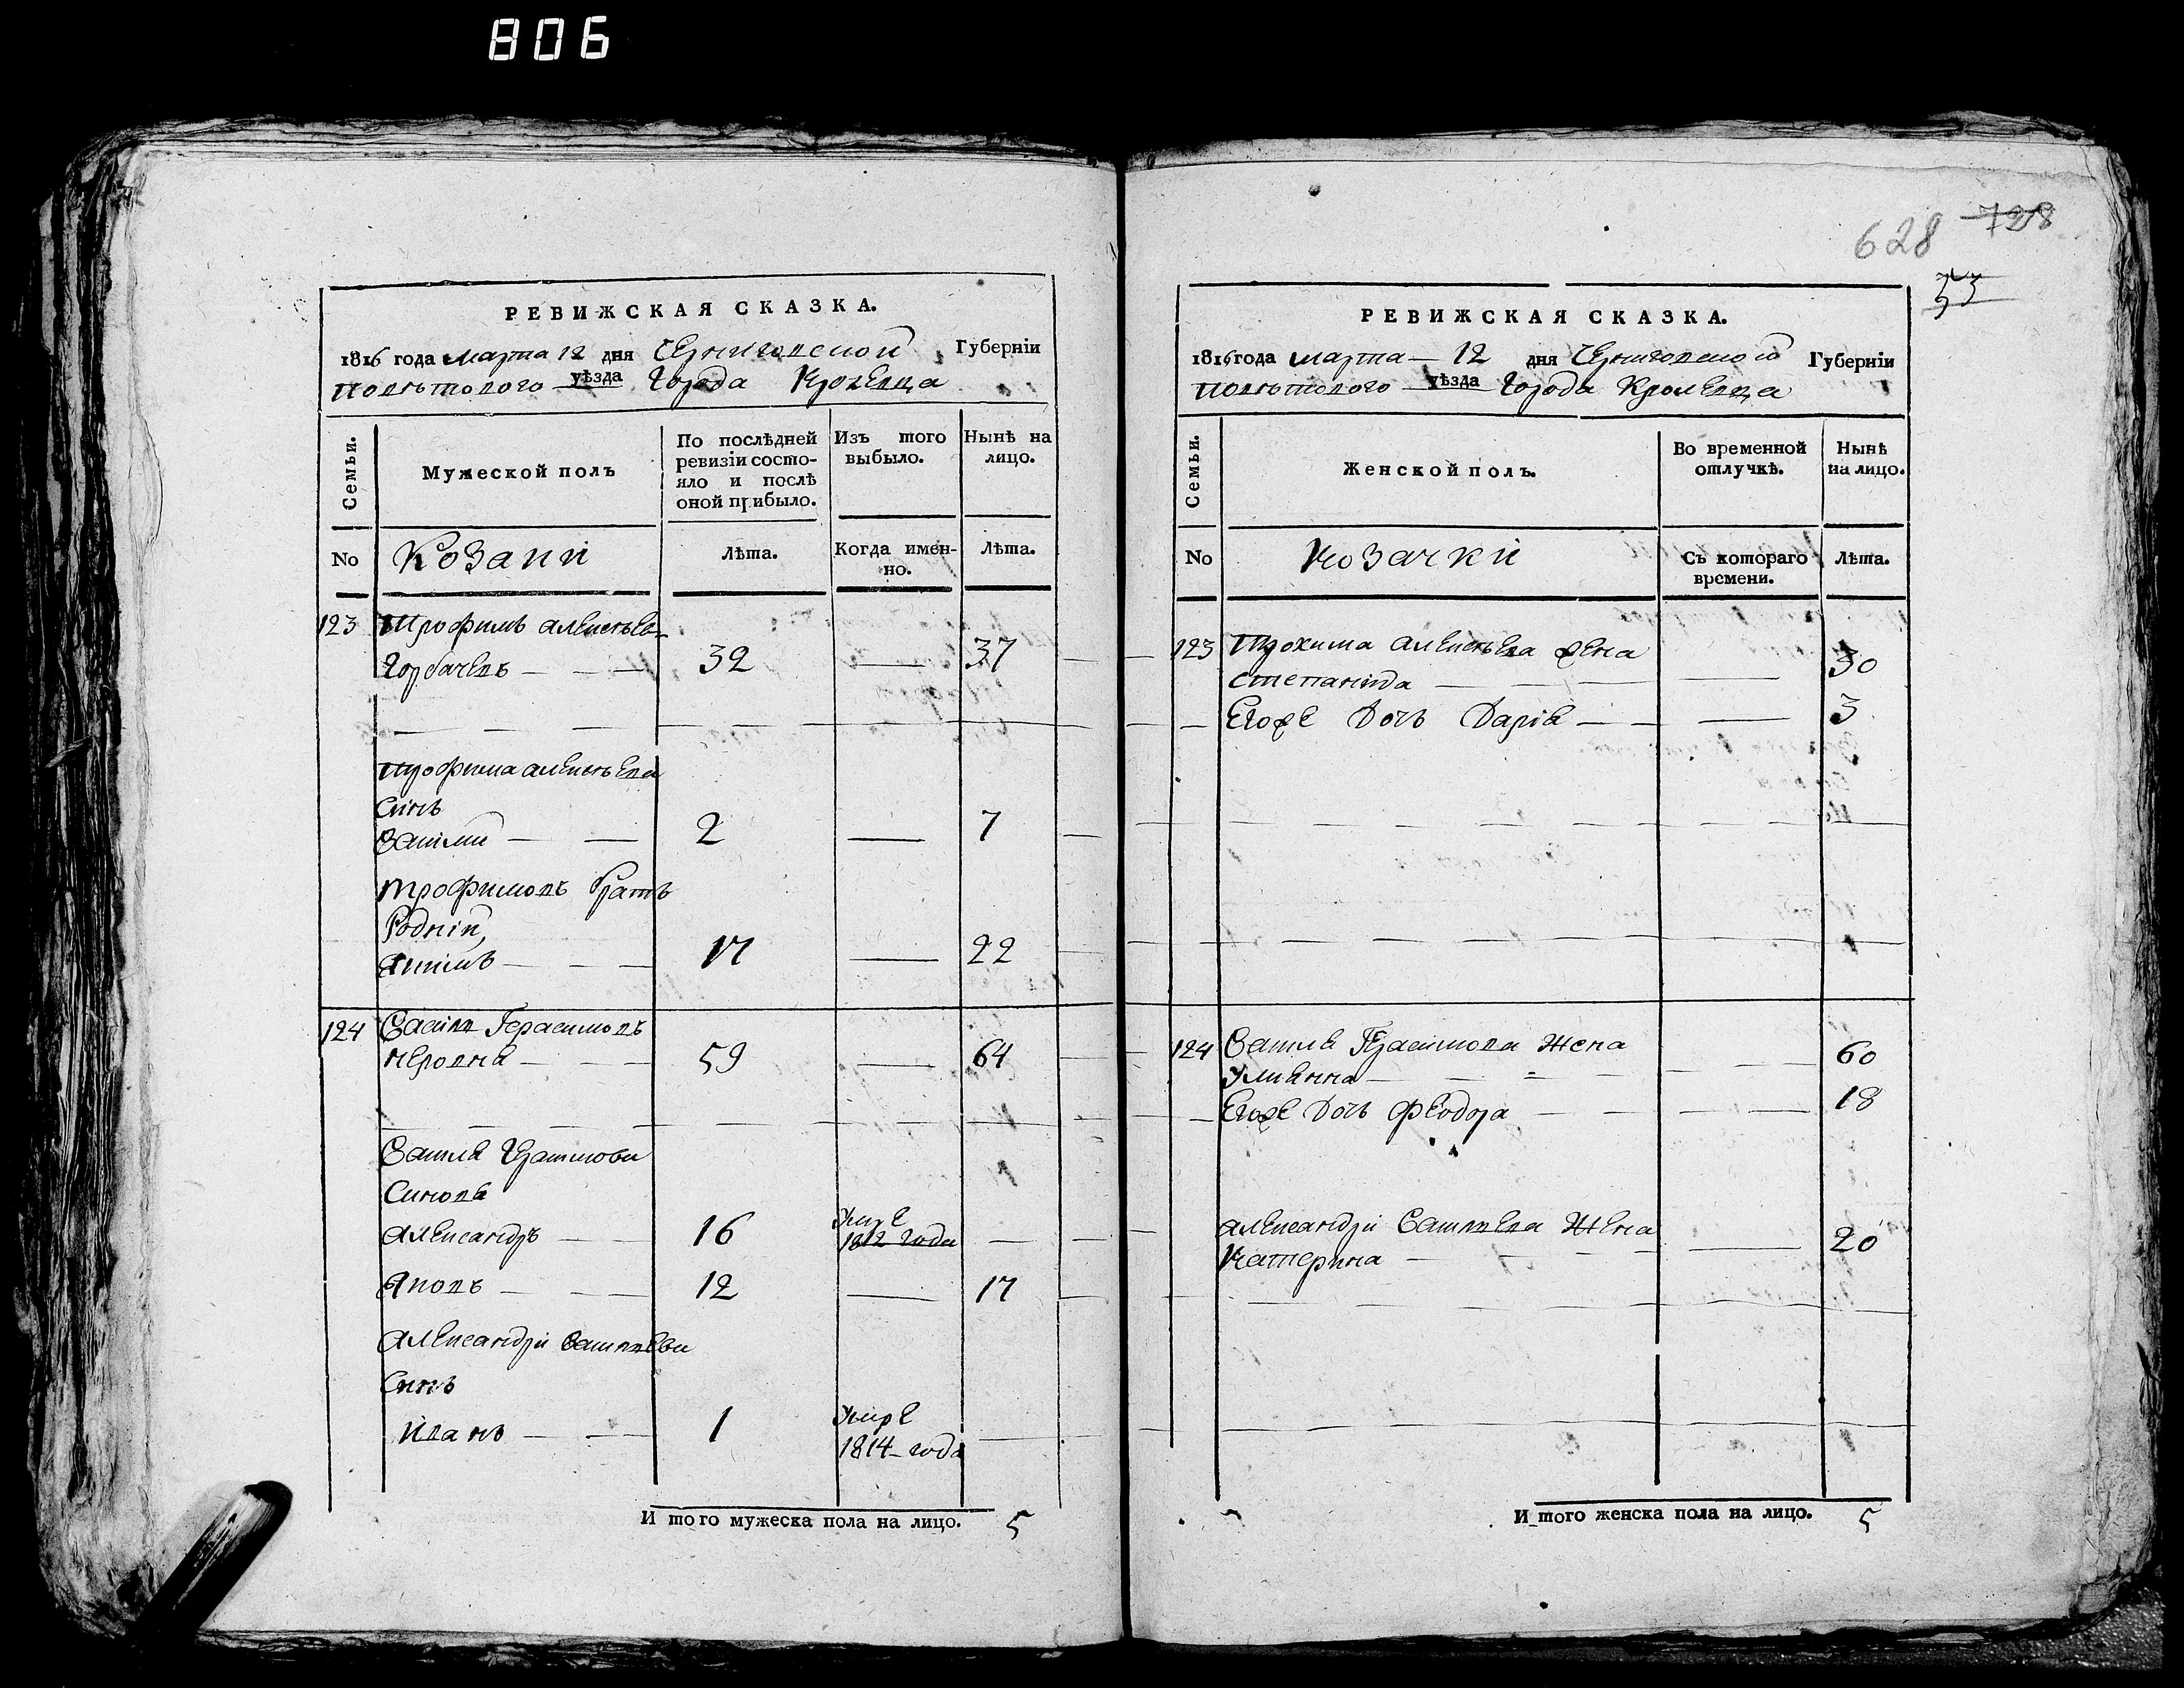 806
РЕВИЖСКАЯ СКАЗКА.
1816 года марта 12 дня Черниговской Губерніи
Повѣтового уѣзда Города Кролевца
Семьи.
Мужеской полъ
По послѣдней ревизіи состо-
яло и послѣ
оной прибыло.
Изъ того выбыло.
Нынѣ на лицо.
No
Козаки
Лѣта.
Когда имен-
но.
Лѣта.
123 Трофимъ Алексѣев
Горбачевъ — — 32 — 37
Трофима Алексѣева
Синъ
2 — 7
Трофимовъ братъ
Родній,
Якимъ — — 17 — 22
124 Василь Герасимовъ
59 — 64
Василя Герасимова
Синовя
Александръ — — 16 Умре 1812 года —
Яковъ — — 12 — 17
Александра Васильева
Синъ
Иванъ — — 1 Умре
1814 года
И того мужеска пола на лицо. 5
628 728
53
РЕВИЖСКАЯ СКАЗКА.
1816 года марта — 12 дня Черниговской Губерніи
Повѣтового уѣзда Города Кролевца
Семьи.
Женской полъ.
Во временной
отлучкѣ.
Нынѣ
на лицо.
No
Козачки
Съ котораго
времени.
Лѣта.
123 Трохима Алексѣева жена
Степанида — — — 30
Егоже Дочь Дарія — — — 3
124 Василя Герасимова Жена
Улиянна — — — 60
Егоже Дочь Феодора — — — 18
Александра Васильева Жена
Катерина — — — 20
И того женска пола на лицо. 5